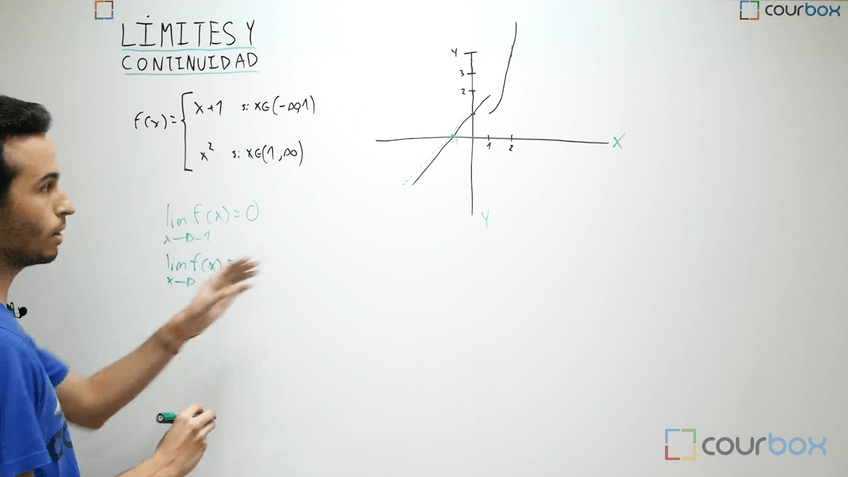 courbox
LÍMITES Y
CONTINUIDAD
f(x)= { x+1 si x∈(-∞,1)
x² si x∈(1,∞)
lim f(x)=0
x→-1
lim f(x)=
x→
Y
3
2
-1 1 2 X
Y
courbox